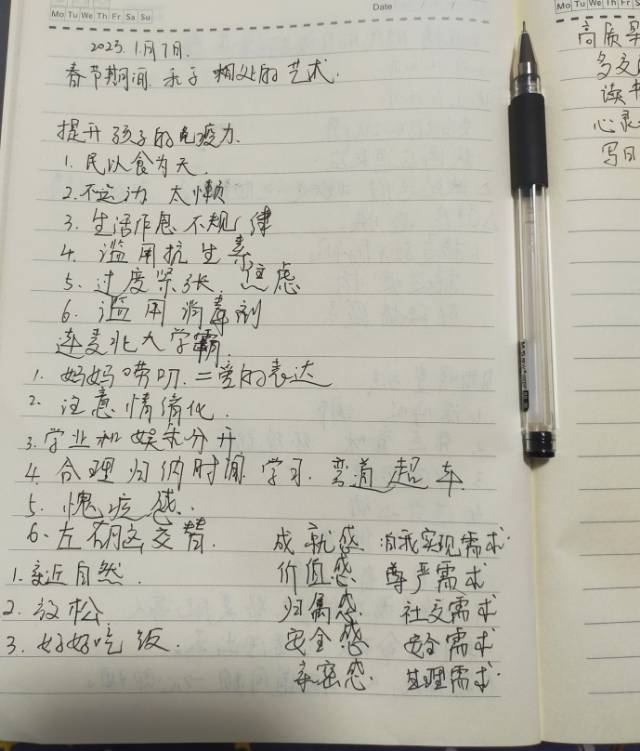 Mo Tu We Th Fr Sa Su
Date
2023.1月7日.
春节期间 亲子相处的艺术.
提升孩子的免疫力.
1. 民以食为天.
2. 不运动 太懒
3. 生活作息不规律
4. 滥用抗生素
5. 过度紧张. 焦虑
6. 滥用消毒剂
连麦北大学霸.
1. 妈妈唠叨.=爱的表达
2. 注意情绪化.
3. 学业和娱乐分开
4. 合理归纳时间 学习. 弯道超车.
5. 愧疚感.
6. 左右脑交替. 成就感 自我实现需求.
1. 亲近自然. 价值感 尊严需求
2. 放松 归属感. 社交需求
3. 好好吃饭. 安全感 安全需求
亲密感. 生理需求.
Mo Tu We Th Fr
高质
多交
读书
心灵
写日